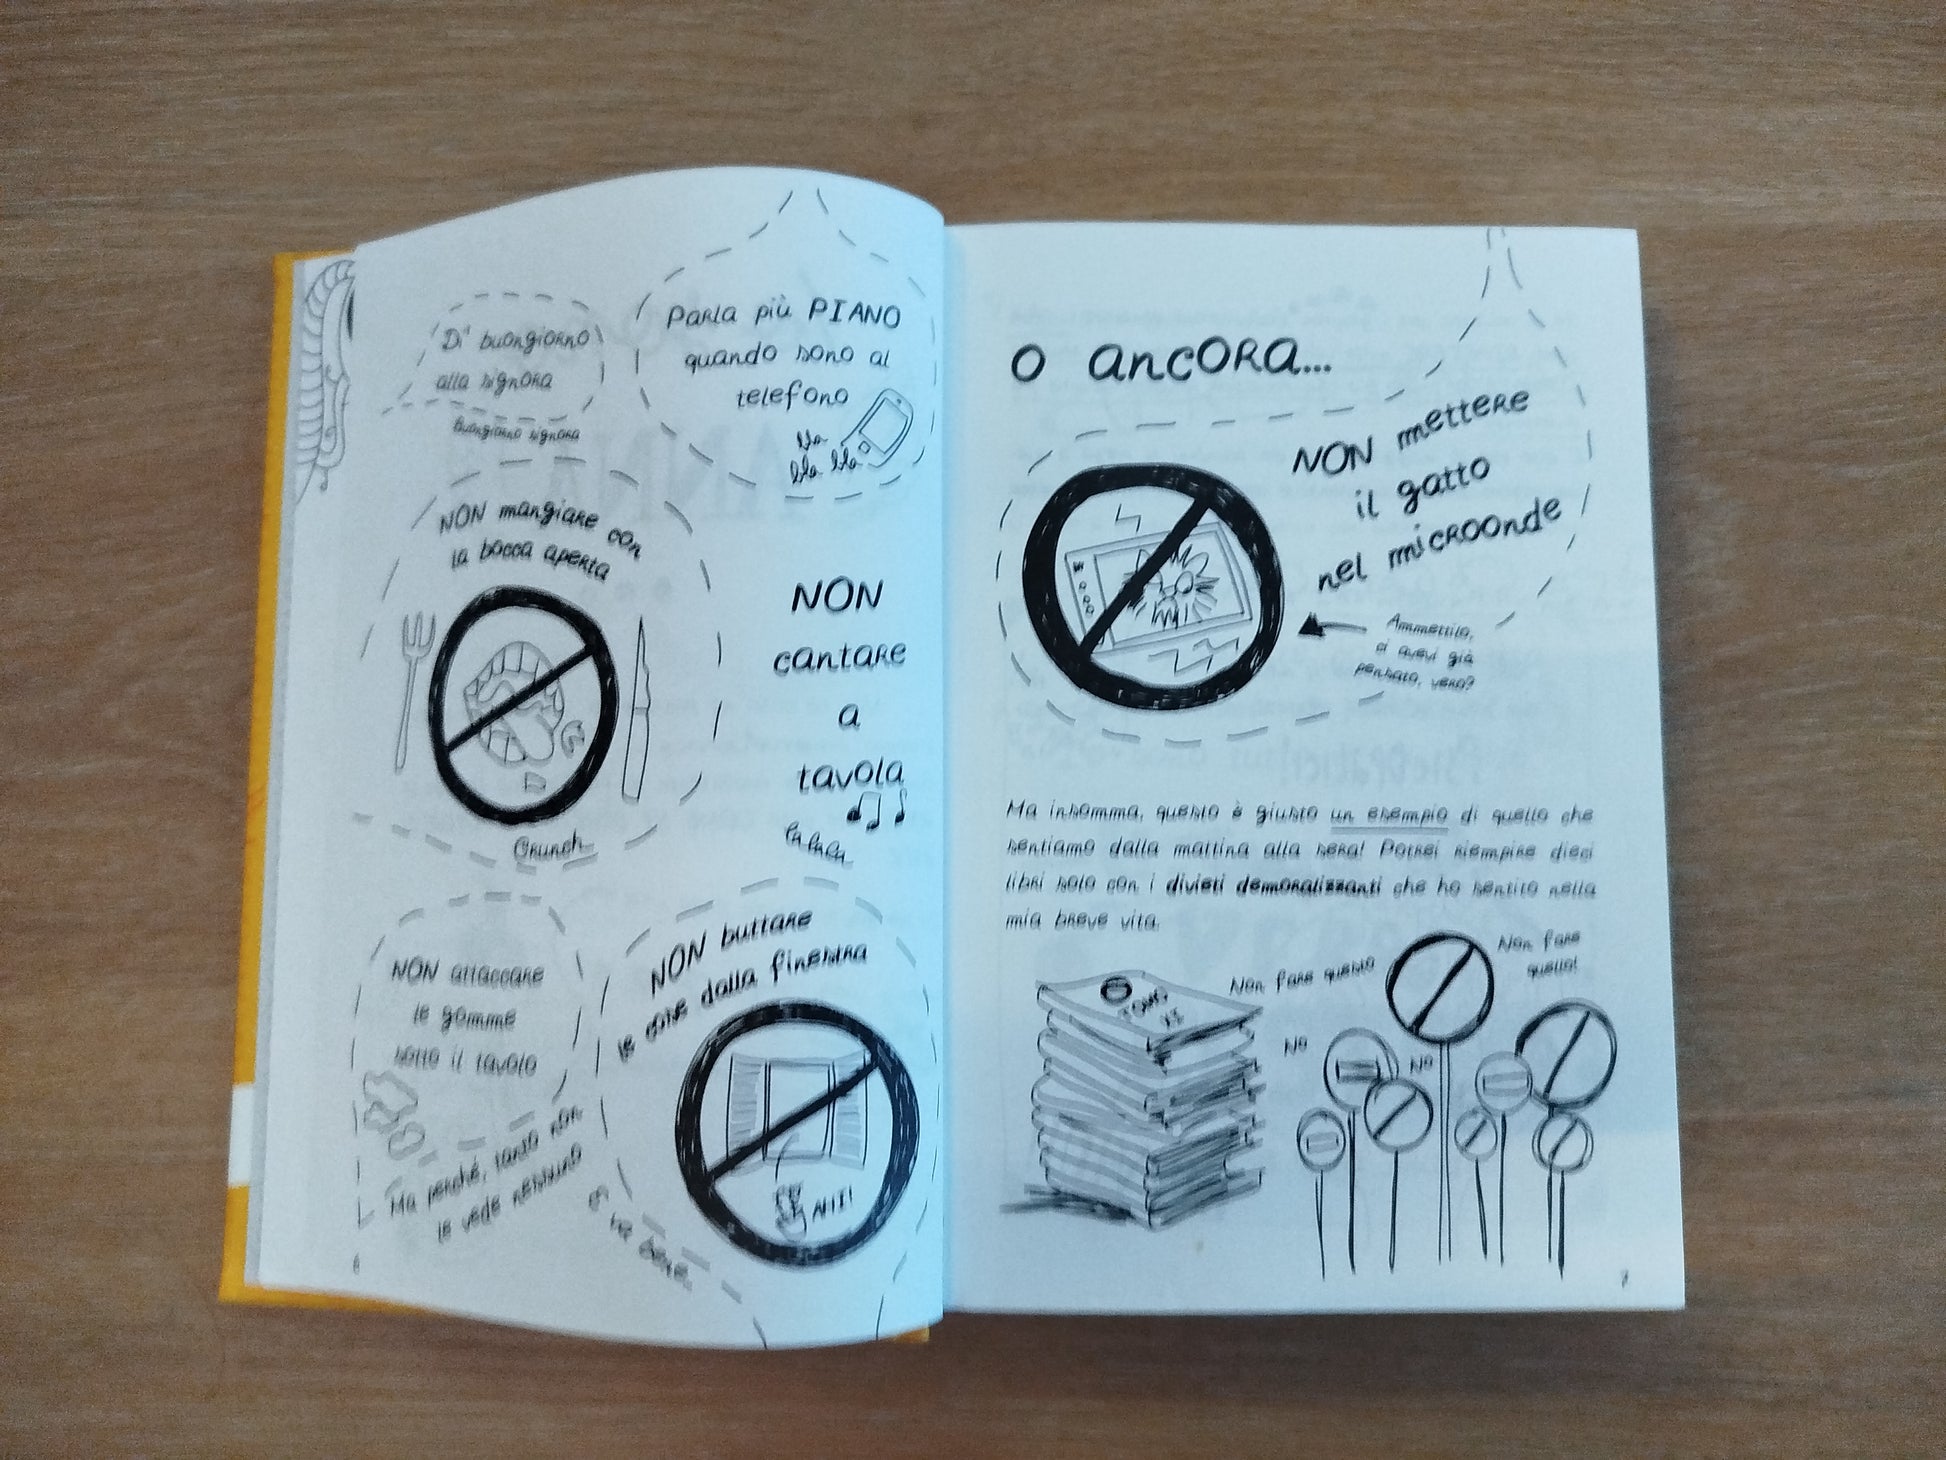 Di' buongiorno
alla signora
Buongiorno signora
Parla più PIANO
quando sono al
telefono
bla
bla bla
NON mangiare con
la bocca aperta
Crunch
NON
cantare
a
tavola
la la la
NON attaccare
le gomme
sotto il tavolo
Ma perché, tanto non
le vede nessuno
NON buttare
le cose dalla finestra
E va bene.
o ancora...
NON mettere
il gatto
nel microonde
Ammettilo,
ci avevi già
pensato, vero?
Ma insomma, questo è giusto un esempio di quello che
sentiamo dalla mattina alla sera! Potrei riempire dieci
libri solo con i divieti demoralizzanti che ho sentito nella
mia breve vita.
TOMO
XI
Non fare questo
Non fare
quello!
No
No
7